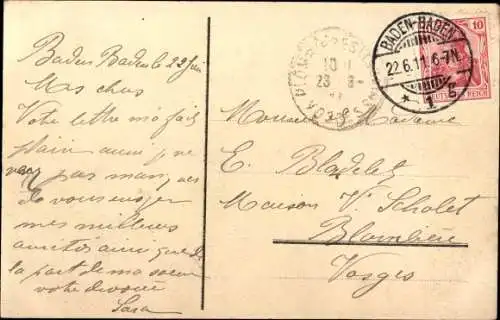 Baden Baden le 22 Juin
Mes chers
Votre lettre m'a fait
plaisir aussi je ne
veux pas manquer
de vous envoyer
mes meilleurs
amitiés ainsi que de
la part de ma soeur
votre dévouée
Sara
BADEN-BADEN
22.6.11. 6-7N.
* 1 g
10
DEUTSCHES REICH
PLOMBIÈRES
VOSGES
23 6
11
Monsieur & Madame
E. Bladelet
Maison V. Scholet
Blombière
Vosges